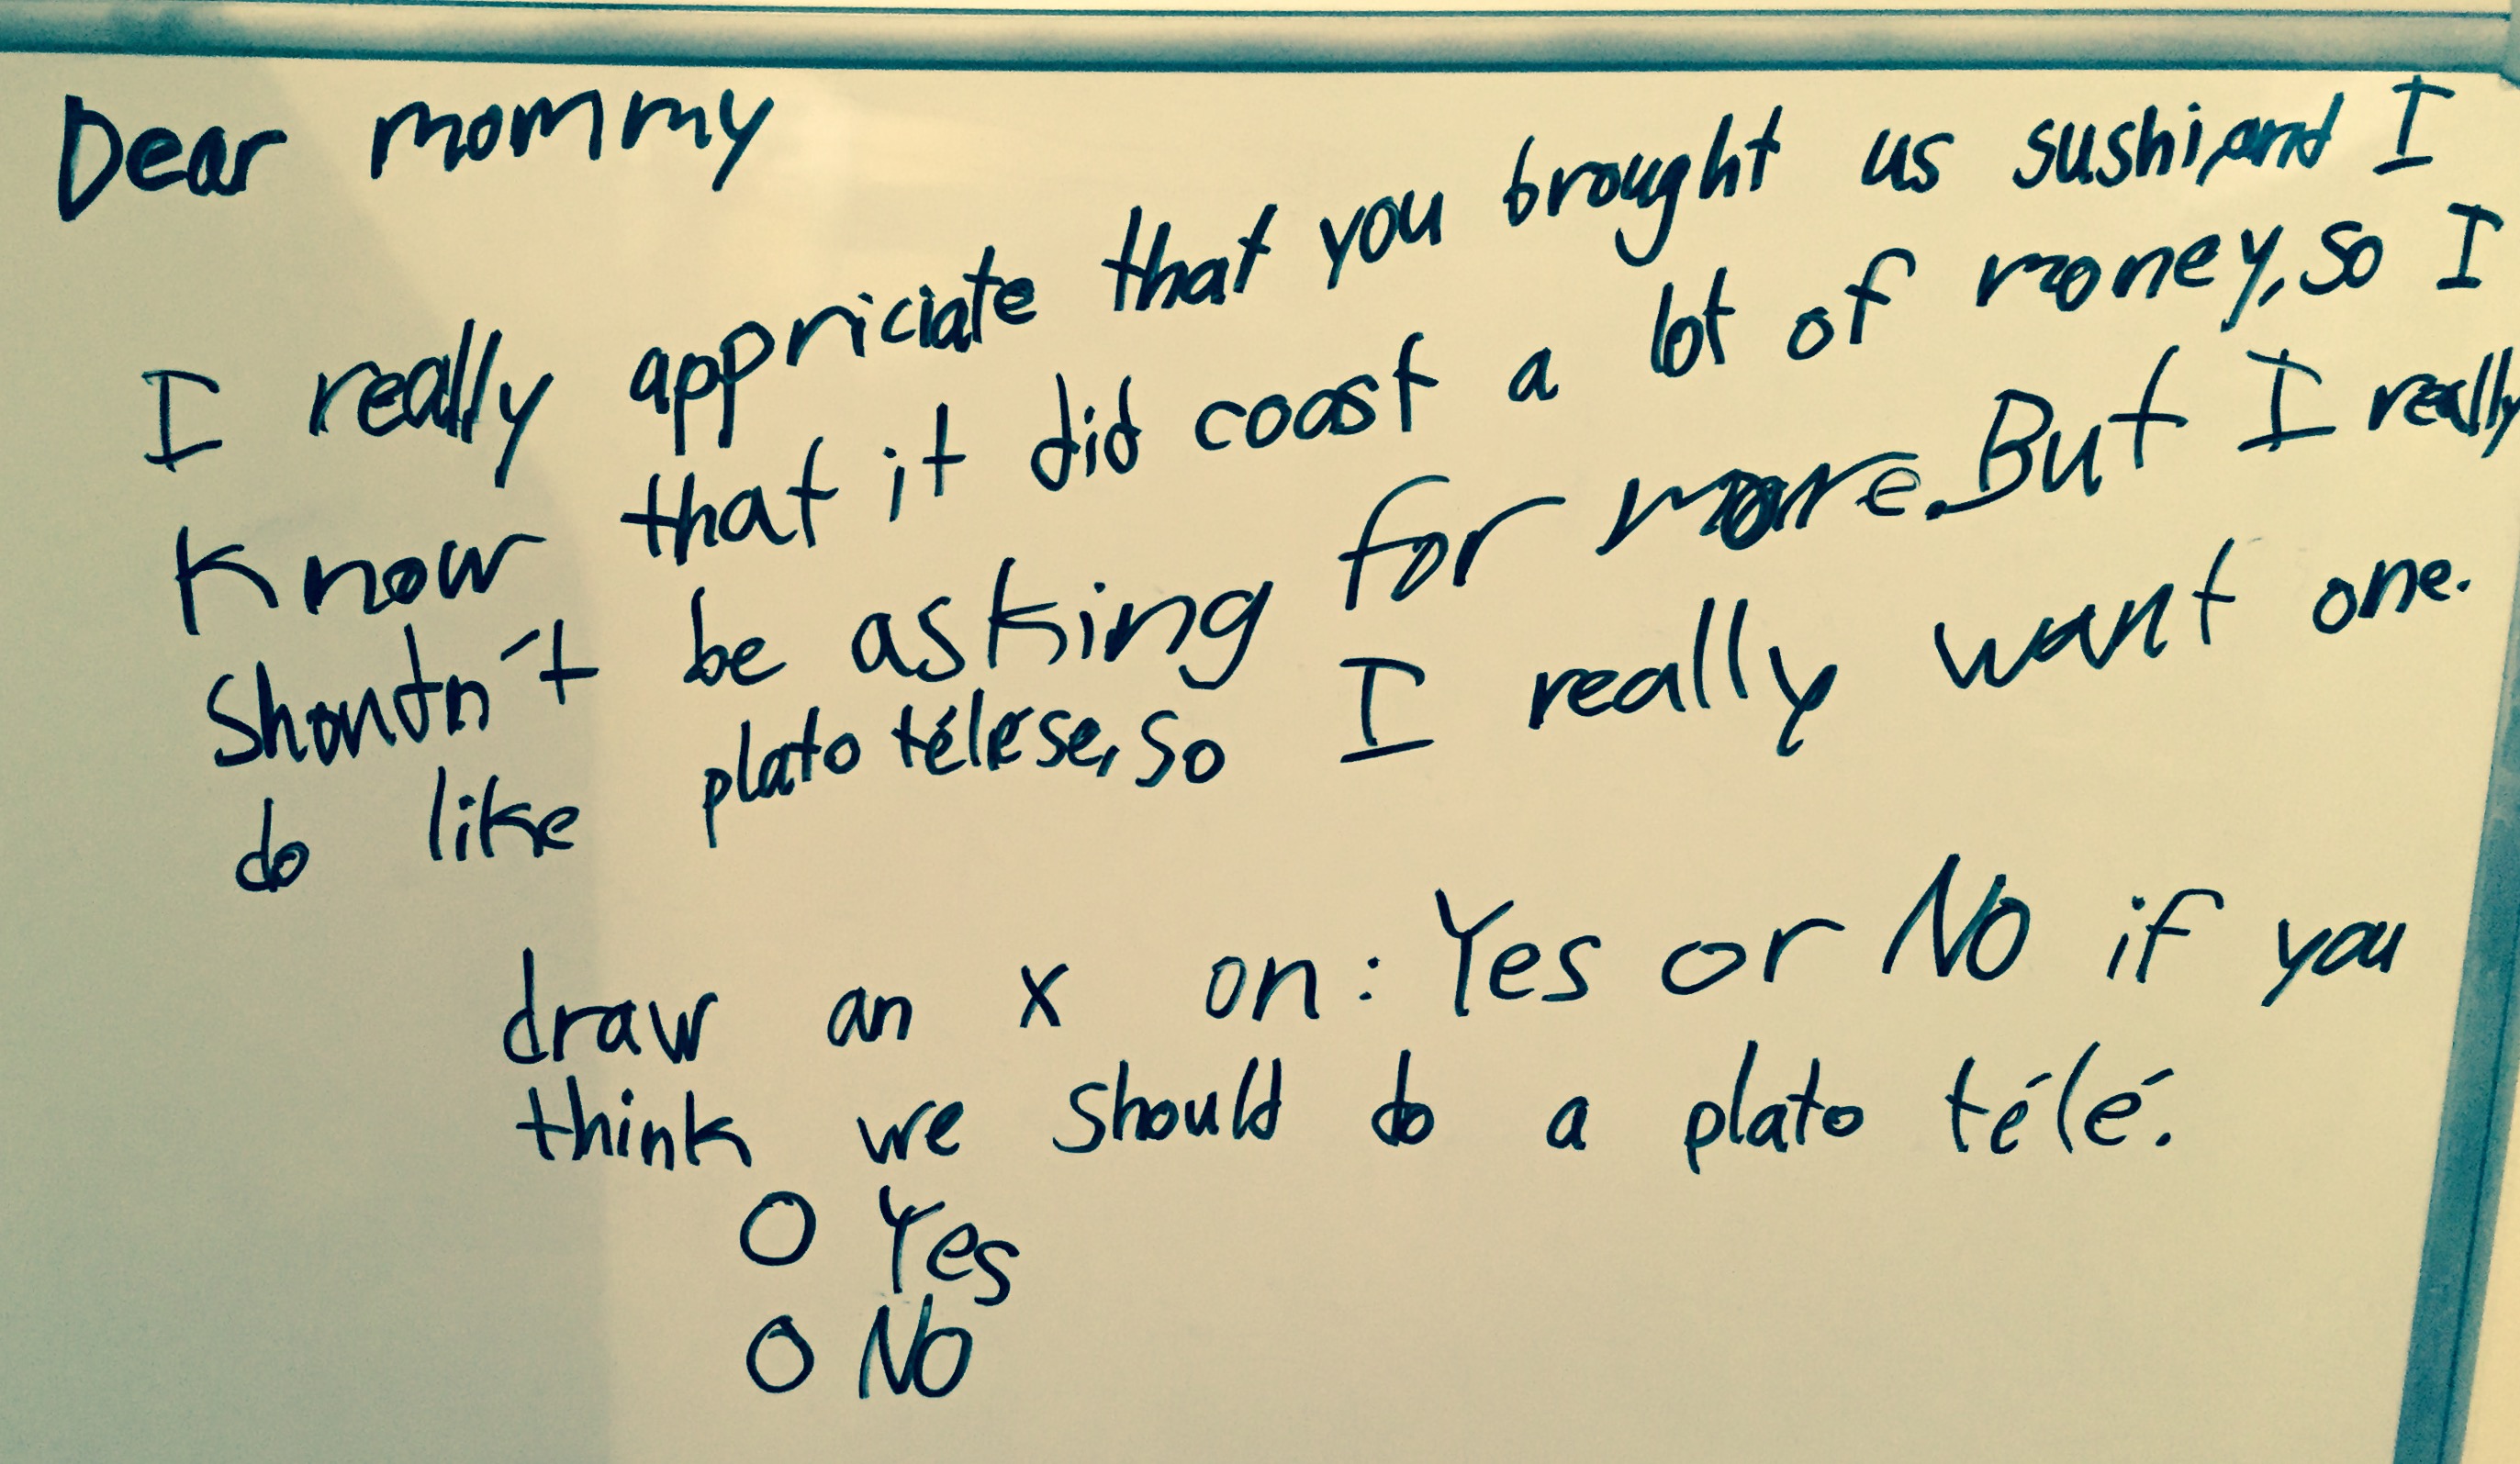 Dear mommy
I really appriciate that you brought us sushi, and I
Know that it did coast a lot of money, so I
Shoutn't be asking for more. But I really
do like plato télése, so I really want one.
draw an x on: Yes or No if you
think we should do a plato télé.
O Yes
O No